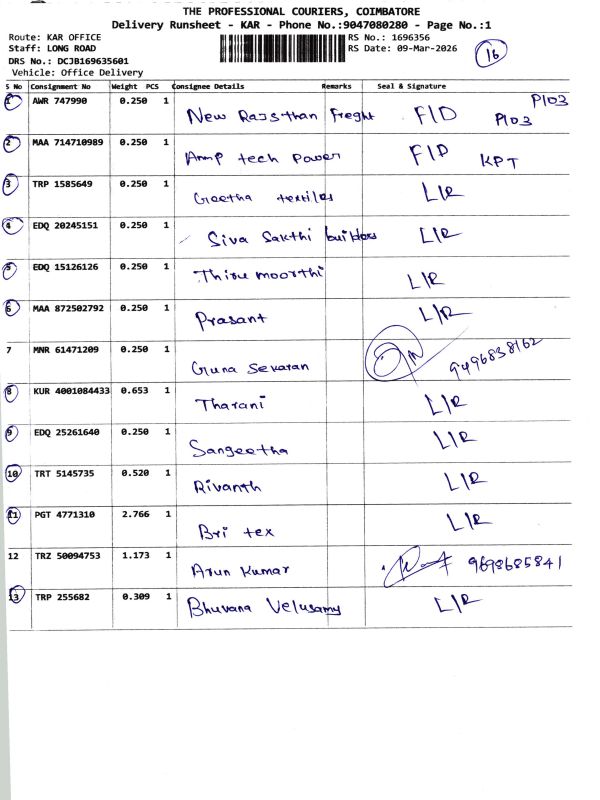 THE PROFESSIONAL COURIERS, COIMBATORE
Delivery Runsheet - KAR - Phone No.:9047080280 - Page No.:1
Route: KAR OFFICE RS No.: 1696356
Staff: LONG ROAD RS Date: 09-Mar-2026 16
DRS No.: DCJB169635601
Vehicle: Office Delivery
S No Consignment No Weight PCS Consignee Details Remarks Seal & Signature
1 AWR 747990 0.250 1 New Rajsthan freght F/D P103 P103
2 MAA 714710989 0.250 1 Amp tech Power F/D KPT
3 TRP 1585649 0.250 1 Geetha textiles L/R
4 EDQ 20245151 0.250 1 Siva Sakthi builders L/R
5 EDQ 15126126 0.250 1 Thiru moorthi L/R
6 MAA 872502792 0.250 1 Prasant L/R
7 MNR 61471209 0.250 1 Guna Sekaran 9496838162
8 KUR 4001084433 0.653 1 Tharani L/R
9 EDQ 25261640 0.250 1 Sangeetha L/R
10 TRT 5145735 0.520 1 Rivanth L/R
11 PGT 4771310 2.766 1 Bri tex L/R
12 TRZ 50094753 1.173 1 Arun Kumar 9698685841
13 TRP 255682 0.309 1 Bhuvana Velusamy L/R